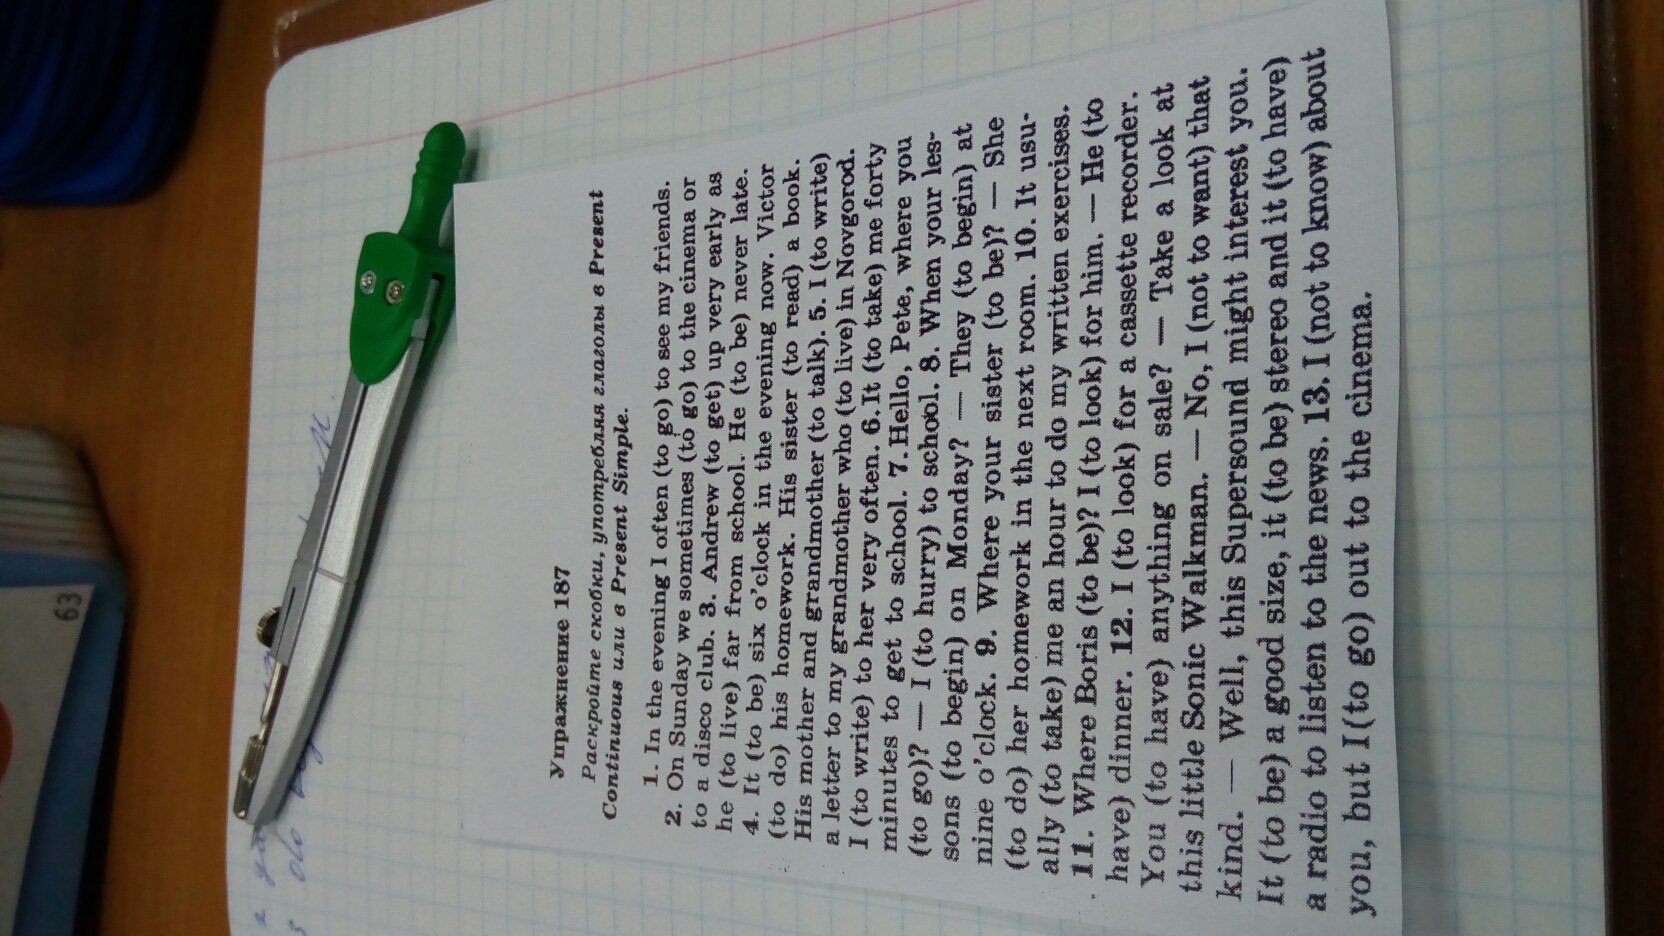 Упражнение 187
Раскройте скобки, употребляя глаголы в Present
Continuous или в Present Simple.
1. In the evening I often (to go) to see my friends.
2. On Sunday we sometimes (to go) to the cinema or
to a disco club. 3. Andrew (to get) up very early as
he (to live) far from school. He (to be) never late.
4. It (to be) six o'clock in the evening now. Victor
(to do) his homework. His sister (to read) a book.
His mother and grandmother (to talk). 5. I (to write)
a letter to my grandmother who (to live) in Novgorod.
I (to write) to her very often. 6. It (to take) me forty
minutes to get to school. 7. Hello, Pete, where you
(to go)? — I (to hurry) to school. 8. When your les-
sons (to begin) on Monday? — They (to begin) at
nine o'clock. 9. Where your sister (to be)? — She
(to do) her homework in the next room. 10. It usu-
ally (to take) me an hour to do my written exercises.
11. Where Boris (to be)? I (to look) for him. — He (to
have) dinner. 12. I (to look) for a cassette recorder.
You (to have) anything on sale? — Take a look at
this little Sonic Walkman. — No, I (not to want) that
kind. — Well, this Supersound might interest you.
It (to be) a good size, it (to be) stereo and it (to have)
a radio to listen to the news. 13. I (not to know) about
you, but I (to go) out to the cinema.
63